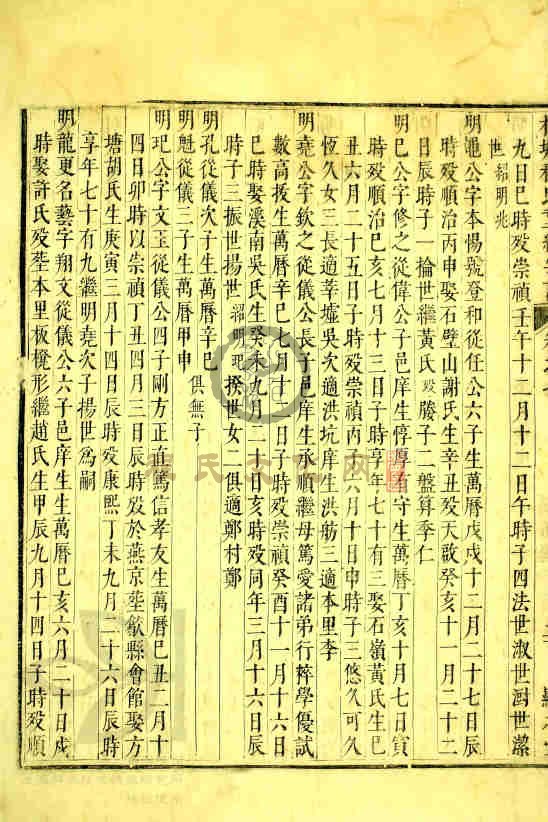 九日巳時歿崇禎壬午十二月十二日午時子四法世淑世㴻世潔
世紹明兆
明颽公字本暘號登和從任公六子生萬曆戊戌十二月二十七日辰
時歿順治丙申娶石壁山謝氏生辛丑歿天啟癸亥十一月二十二
日辰時子一掄世繼黃氏歿媵子二盤算季仁
明巳公字修之從偉公子邑庠生惇厚有守生萬曆丁亥十月七日寅
時歿順治己亥七月十三日子時享年七十有三娶石嶺黃氏生巳
丑六月二十五日子時歿崇禎丙子六月十日申時子三悠久可久
恆久女三長適莘墟吳次適洪坑庠生洪舫三適本里李
明堯公字欽之從儀公長子邑庠生承順繼母篤愛諸弟行粹學優試
數高援生萬曆辛巳七月十二日子時歿崇禎癸酉十一月十六日
巳時娶溪南吳氏生癸未九月二十日亥時歿同年三月十六日辰
時子三振世揚世紹明玘揆世女二俱適鄭村鄭
明孔從儀次子生萬曆辛巳
明魁從儀三子生萬曆甲申 俱無子
明玘公字文玉從儀公四子剛方正直篤信孝友生萬曆巳丑二月十
四日卯時以崇禎丁丑四月三日辰時歿於燕京塟歙縣會館娶方
塘胡氏生庚寅三月十四日辰時歿康熙丁未九月二十六日辰時
享年七十有九繼明堯次子揚世為嗣
明龍更名藝字翔文從儀公六子邑庠生生萬曆巳亥六月二十日戌
時娶許氏歿塟本里板櫈形繼趙氏生甲辰九月十四日子時歿順
程氏文化网